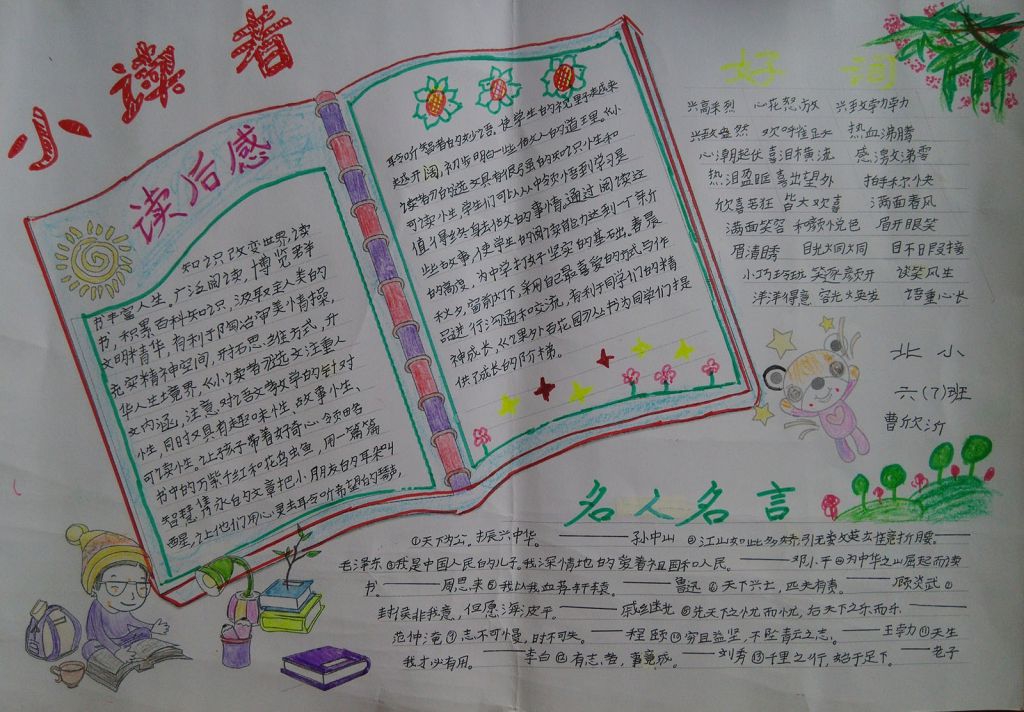 小读者
读后感
知识改变世界,读
书丰富人生。广泛阅读,博览群
书,积累百科知识,汲取定人类的
文明精华,有利于陶冶审美情操,
充实精神空间,开拓思维方式,升
华人生境界。《小读者》选文注重人
文内涵,注意对语文教学的针对
性,同时又具有趣味性、故事性、
可读性。让孩子带着好奇心领略
书中的万紫千红和花鸟虫鱼,用一篇篇
智慧,隽永的文章把小朋友的耳朵叫
醒,让他们用心灵去聆听希望的琴声,
聆听智者的妙语。使学生的视野越来
越开阔,初步明白一些做人的道理。《小
读者》的选文具有很强的知识小性和
可读性,学生们可以从中领悟到学习是
值得终身去做的事情。通过阅读这
些故事,使学生的阅读能力达到一个新
的高度,为中学打好坚实的基础。春晨
秋夕,窗前灯下,采用自己最喜爱的形式与作
品进行沟通和交流,有利于同学们的精
神成长,《课外百花园》丛书为同学们提
供了成长的阶梯。
好词
兴高采烈 心花怒放 兴致勃勃
兴致盎然 欢呼雀跃 热血沸腾
心潮起伏 喜泪横流 感激涕零
热泪盈眶 喜出望外 拍手称快
欣喜若狂 皆大欢喜 满面春风
满面笑容 和颜悦色 眉开眼笑
眉清目秀 目光大同大同 目不暇接
小巧玲珑 笑逐颜开 谈笑风生
洋洋得意 容光焕发 语重心长
北小
六(7)班
曹欣沂
名人名言
①天下为公。振兴中华。——孙中山 ②江山如此多娇,引无数英雄竞折腰。——
毛泽东 ③我是中国人民的儿子。我深情地的爱着祖国和人民。——邓小平 ④为中华之崛起而读
书。——周恩来 ⑤我以我血荐轩辕。——鲁迅 ⑥天下兴亡,匹夫有责。——顾炎武 ⑦
封侯非我意,但愿海波平。——戚继光 ⑧先天下之忧而忧,后天下之乐而乐.——
范仲淹 ⑨志不可慢,时不可失。——程颐 ⑩穷且益坚,不坠青云之志。——王勃 ⑪天生
我才必有用。——李白 ⑫有志者,事竟成。——刘秀 ⑬千里之行,始于足下。——老子